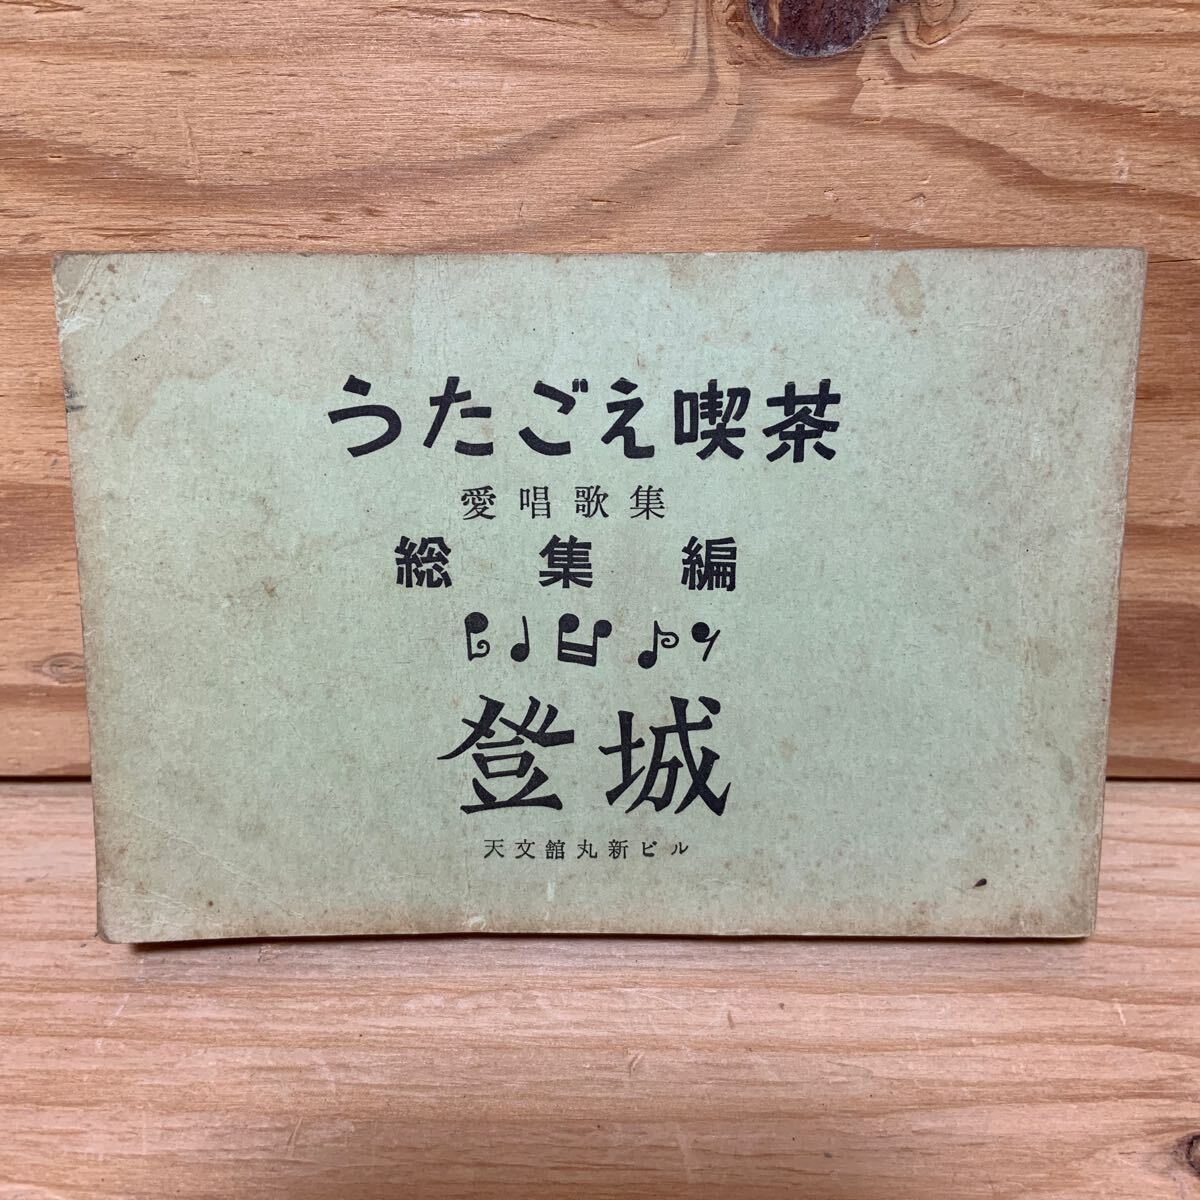 うたごえ喫茶
愛唱歌集
総集編
登城
天文館丸新ビル